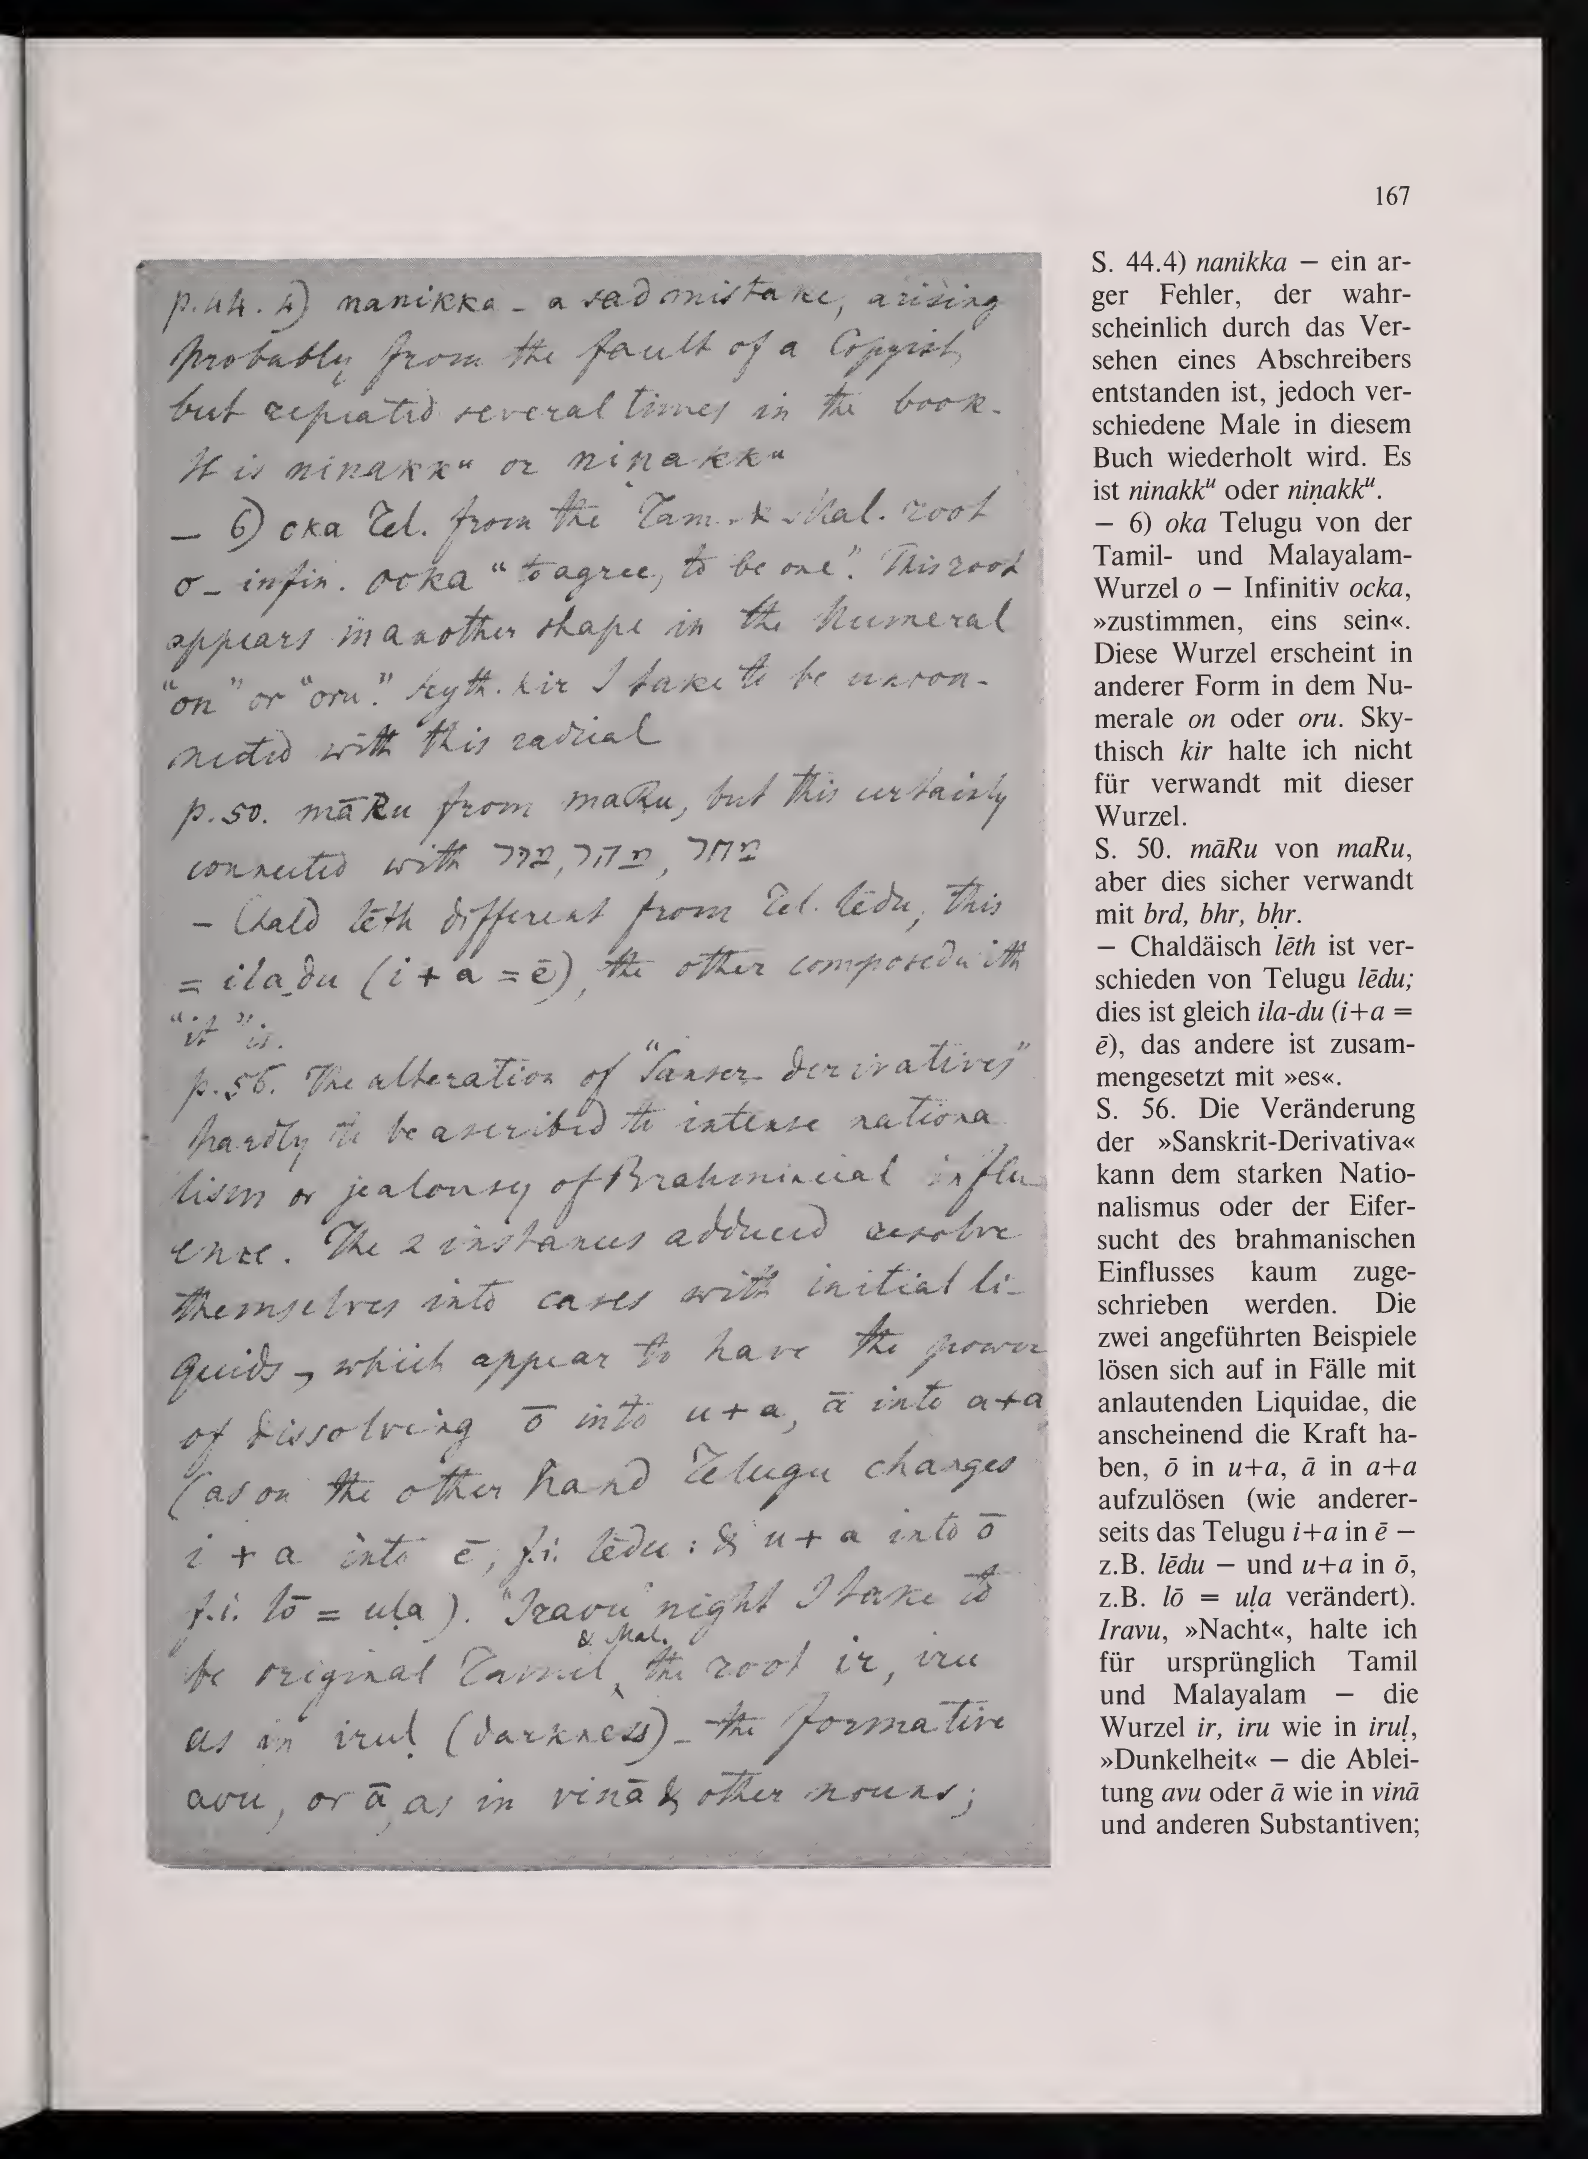 167
p.44. 4) nanikka – a sad mistake, arising
probably from the fault of a Copyist,
but repeated several times in the book.
It is ninakkᵘ or niṇakkᵘ
– 6) oka Tel. from the Tam. & Mal. root
o – infin. ocka "to agree, to be one". This root
appears in another shape in the Numeral
"on" or "oru." Skyth. kir I take to be uncon-
nected with this radical
p. 50. māRu from maRu, but this certainly
connected with
– Chald lēth different from Tel. lēdu, this
= ila-du (i + a = ē), the other composed with
"it" is.
p. 56. The alteration of "Sanscr derivatives"
hardly to be ascribed to intense nationa
lism or jealousy of Brahminical influ
ence. The 2 instances adduced resolve
themselves into cases with initial li-
quids, which appear to have the power
of dissolving ō into u + a, ā into a+a
(as on the other hand Telugu changes
i + a into ē, f.i. lēdu: & u + a into ō
f.i. lō = uḷa). "Iravu" night I take to
& Mal.
be original Tamil, the root ir, iru
as in iruḷ (darkness) – the formative
avu, or ā, as in vinā & other nouns;
S. 44.4) nanikka – ein ar-
ger Fehler, der wahr-
scheinlich durch das Ver-
sehen eines Abschreibers
entstanden ist, jedoch ver-
schiedene Male in diesem
Buch wiederholt wird. Es
ist ninakkᵘ oder niṇakkᵘ.
– 6) oka Telugu von der
Tamil- und Malayalam-
Wurzel o – Infinitiv ocka,
»zustimmen, eins sein«.
Diese Wurzel erscheint in
anderer Form in dem Nu-
merale on oder oru. Sky-
thisch kir halte ich nicht
für verwandt mit dieser
Wurzel.
S. 50. māRu von maRu,
aber dies sicher verwandt
mit brd, bhr, bḥr.
– Chaldäisch lēth ist ver-
schieden von Telugu lēdu;
dies ist gleich ila-du (i+a =
ē), das andere ist zusam-
mengesetzt mit »es«.
S. 56. Die Veränderung
der »Sanskrit-Derivativa«
kann dem starken Natio-
nalismus oder der Eifer-
sucht des brahmanischen
Einflusses kaum zuge-
schrieben werden. Die
zwei angeführten Beispiele
lösen sich auf in Fälle mit
anlautenden Liquidae, die
anscheinend die Kraft ha-
ben, ō in u+a, ā in a+a
aufzulösen (wie anderer-
seits das Telugu i+a in ē –
z.B. lēdu – und u+a in ō,
z.B. lō = uḷa verändert).
Iravu, »Nacht«, halte ich
für ursprünglich Tamil
und Malayalam – die
Wurzel ir, iru wie in iruḷ,
»Dunkelheit« – die Ablei-
tung avu oder ā wie in vinā
und anderen Substantiven;